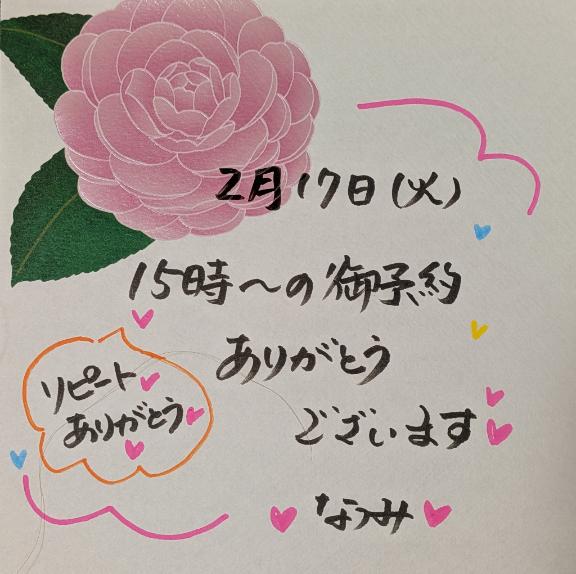 2月17日(火)
15時〜の御予約
ありがとう
ございます
リピート
ありがとう
なつみ